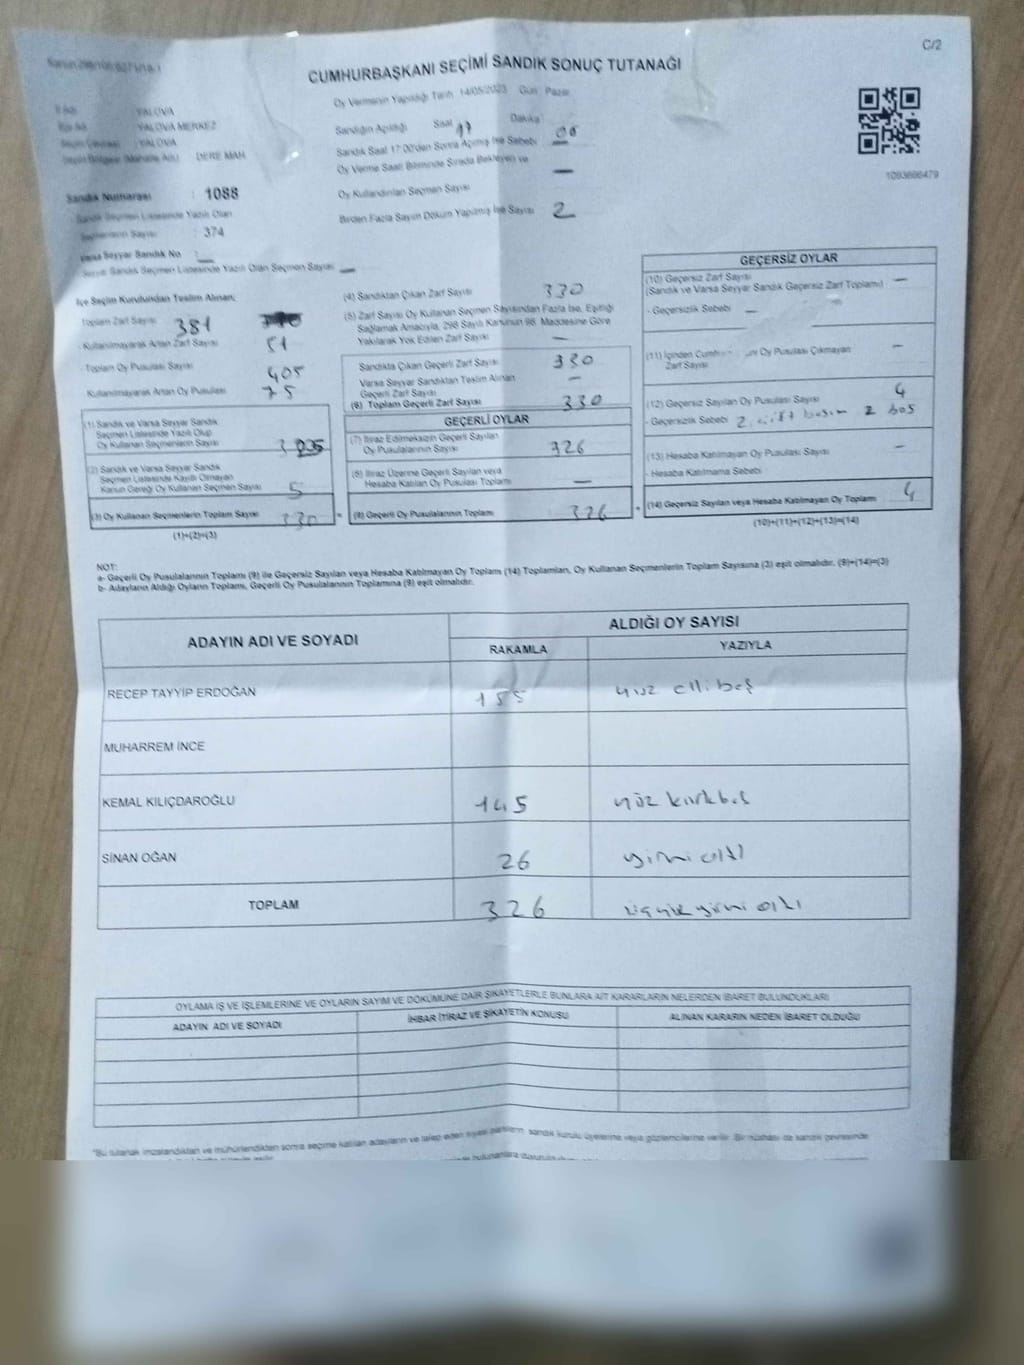 C/2
CUMHURBAŞKANI SEÇİMİ SANDIK SONUÇ TUTANAĞI
Oy Vermenin Yapıldığı Tarih 14/05/2023 Gün Pazar
İl Adı : YALOVA
İlçe Adı : YALOVA MERKEZ
Seçim Çevresi : YALOVA
Seçim Bölgesi (Mahalle Adı) : DERE MAH
Sandık Numarası : 1088
Sandık Seçmen Listesinde Yazılı Olan
Seçmenlerin Sayısı : 374
Varsa Seyyar Sandık No : —
Seyyar Sandık Seçmen Listesinde Yazılı Olan Seçmen Sayısı —
Sandığın Açıldığı Saat 17 Dakika 00
Sandık Saat 17:00'den Sonra Açılmış İse Sebebi
Oy Verme Saati Bitiminde Sırada Bekleyen ve —
Oy Kullandırılan Seçmen Sayısı
Birden Fazla Sayım Döküm Yapılmış İse Sayısı 2
1093666479
İlçe Seçim Kurulundan Teslim Alınan,
Toplam Zarf Sayısı 381
- Kullanılmayarak Artan Zarf Sayısı 51
- Toplam Oy Pusulası Sayısı 405
Kullanılmayarak Artan Oy Pusulası 75
(1) Sandık ve Varsa Seyyar Sandık
Seçmen Listesinde Yazılı Olup
Oy Kullanan Seçmenlerin Sayısı
(2) Sandık ve Varsa Seyyar Sandık
Seçmen Listesinde Kayıtlı Olmayan
Kanun Gereği Oy Kullanan Seçmen Sayısı 5
(3) Oy Kullanan Seçmenlerin Toplam Sayısı 330
(1)+(2)=(3)
(4) Sandıktan Çıkan Zarf Sayısı 330
(5) Zarf Sayısı Oy Kullanan Seçmen Sayısından Fazla İse, Eşitliği
Sağlamak Amacıyla, 298 Sayılı Kanunun 98. Maddesine Göre
Yakılarak Yok Edilen Zarf Sayısı —
Sandıkta Çıkan Geçerli Zarf Sayısı 330
Varsa Seyyar Sandıktan Teslim Alınan —
Geçerli Zarf Sayısı
(6) Toplam Geçerli Zarf Sayısı 330
GEÇERLİ OYLAR
(7) İtiraz Edilmeksizin Geçerli Sayılan
Oy Pusulalarının Sayısı 326
(8) İtiraz Üzerine Geçerli Sayılan veya
Hesaba Katılan Oy Pusulası Toplamı —
(9) Geçerli Oy Pusulalarının Toplamı 326
GEÇERSİZ OYLAR
(10) Geçersiz Zarf Sayısı —
(Sandık ve Varsa Seyyar Sandık Geçersiz Zarf Toplamı)
- Geçersizlik Sebebi —
(11) İçinden Oy Pusulası Çıkmayan —
Zarf Sayısı
(12) Geçersiz Sayılan Oy Pusulası Sayısı 4
- Geçersizlik Sebebi 2 2 boş
(13) Hesaba Katılmayan Oy Pusulası Sayısı —
- Hesaba Katılmama Sebebi
(14) Geçersiz Sayılan veya Hesaba Katılmayan Oy Toplamı 4
(10)+(11)+(12)+(13)=(14)
NOT:
a- Geçerli Oy Pusulalarının Toplamı (9) ile Geçersiz Sayılan veya Hesaba Katılmayan Oy Toplamı (14) Toplamları, Oy Kullanan Seçmenlerin Toplam Sayısına (3) eşit olmalıdır. (9)+(14)=(3)
b- Adayların Aldığı Oyların Toplamı, Geçerli Oy Pusulalarının Toplamına (9) eşit olmalıdır.
ADAYIN ADI VE SOYADI ALDIĞI OY SAYISI
RAKAMLA YAZIYLA
RECEP TAYYİP ERDOĞAN 155 yüz elli beş
MUHARREM İNCE
KEMAL KILIÇDAROĞLU 145 yüz kırk beş
SİNAN OĞAN 26 yirmi altı
TOPLAM 326 üçyüz yirmi altı
OYLAMA İŞ VE İŞLEMLERİNE VE OYLARIN SAYIM VE DÖKÜMÜNE DAİR ŞİKAYETLERLE BUNLARA AİT KARARLARIN NELERDEN İBARET BULUNDUKLARI
ADAYIN ADI VE SOYADI İHBAR İTİRAZ VE ŞİKAYETİN KONUSU ALINAN KARARIN NEDEN İBARET OLDUĞU
*Bu tutanak imzalandıktan ve mühürlendikten sonra seçime katılan adayların ve talep eden siyasi partilerin sandık kurulu üyelerine veya gözlemcilerine verilir. Bir nüshası da sandık çevresinde